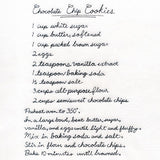 Chocolate Chip Cookies
1 cup white sugar
1 cup butter, softened
1 cup packed brown sugar
2 eggs
2 teaspoons vanilla extract
1 teaspoon baking soda
½ tsp salt
3 cups all-purpose flour
2 cups semisweet chocolate chips
Preheat oven to 350°.
In a large bowl, beat butter, sugar,
vanilla, and eggs until light and fluffy.
Mix in baking soda and salt.
Stir in flour and chocolate chips.
Bake 10 minutes until browned.